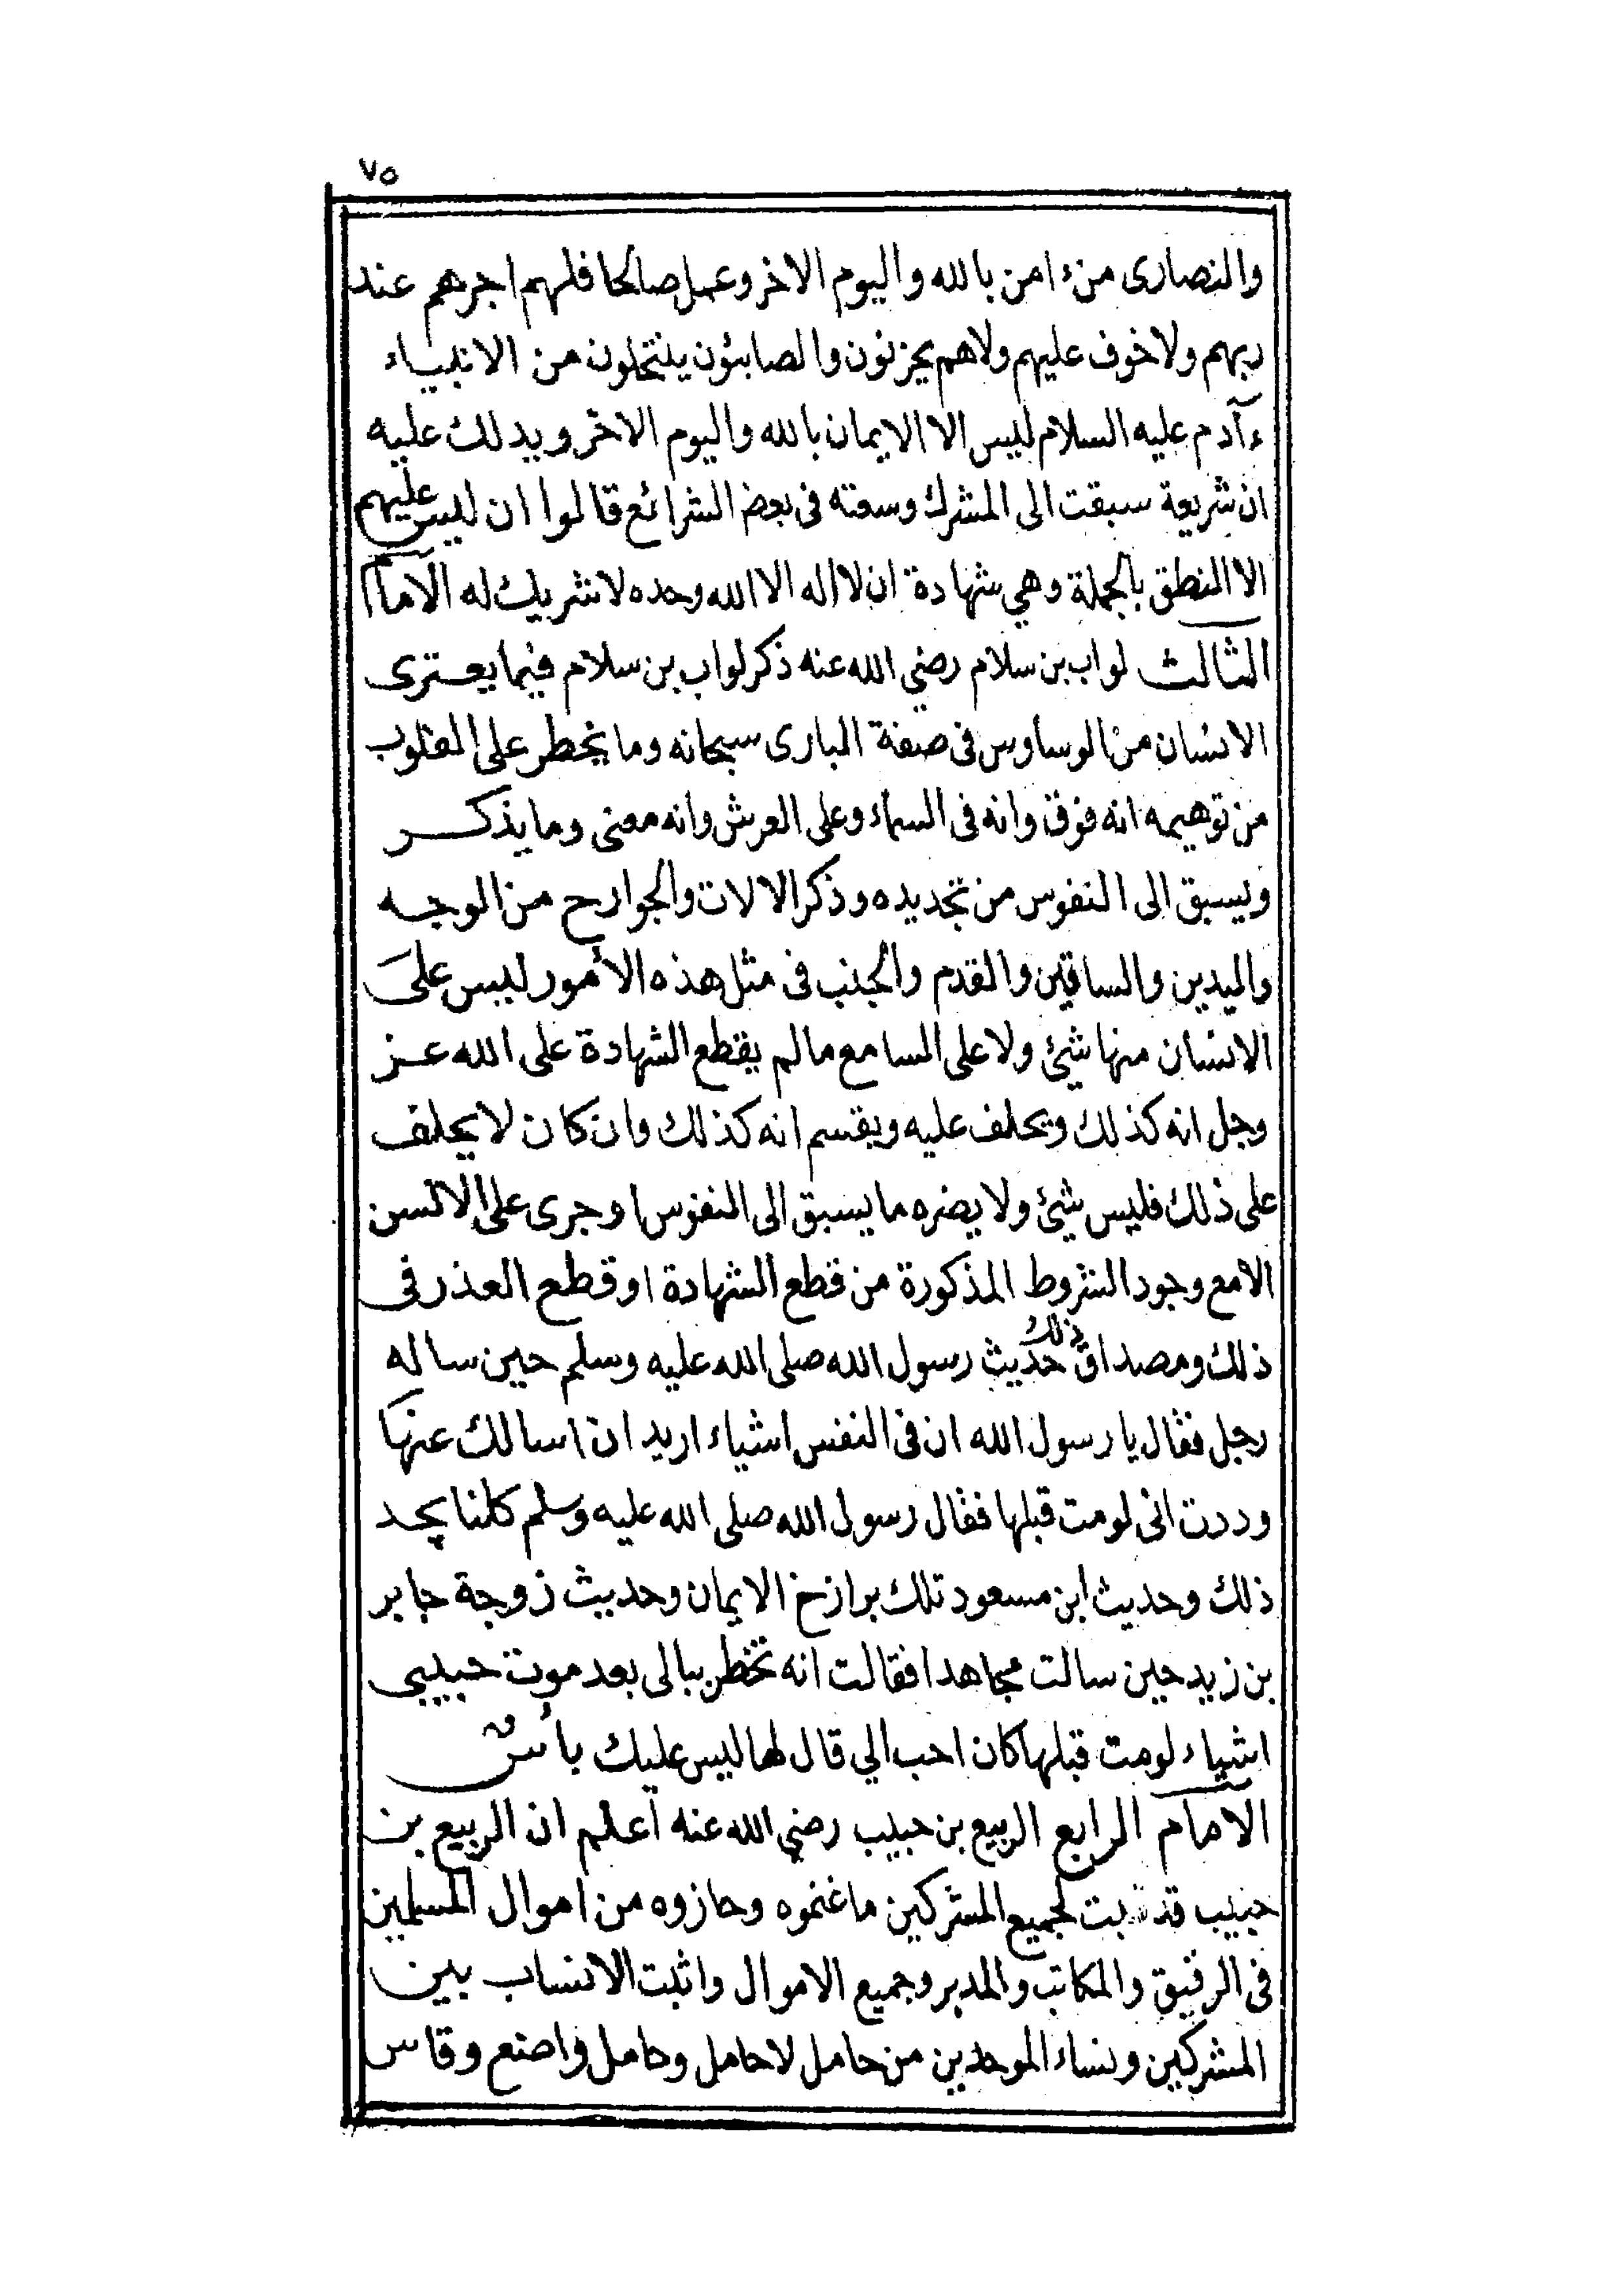 ٧٥
والنصارى من ءامن بالله واليوم الاخر وعمل صالحا فلهم اجرهم عند
ربهم ولا خوف عليهم ولاهم يحزنون والصابئون ينتحلون من الانبياء
ءآدم عليه السلام ليس الا الايمان بالله واليوم الاخر ويدلك عليه
ان شريعة سبقت الى المشرك وسعته فى بعض الشرائع قالوا ان ليس عليهم
الا النطق بالجملة وهي شهادة ان لا اله الا الله وحده لا شريك له الامام
الثالث لواب بن سلام رضي الله عنه ذكر لواب بن سلام فيما يعترى
الانسان من الوساوس فى صفة البارى سبحانه وما يخطر على القلوب
من توهيمه انه فوق وانه فى السماء وعلى العرش وانه معنى وما يذكر
ويسبق الى النفوس من تحديده وذكر الالات والجوارح من الوجه
واليدين والساقين والقدم والجنب فى مثل هذه الأمور ليس على
الانسان منها شيئ ولا على السامع مالم يقطع الشهادة على الله عز
وجل انه كذلك ويحلف عليه ويقسم انه كذلك وان كان لا يحلف
على ذلك فليس شيئ ولا يضره ما يسبق الى النفوس او جرى على الالسن
الا مع وجود الشروط المذكورة من قطع الشهادة او قطع العذر فى
ذلك ومصداق ذلك حديث رسول الله صلى الله عليه وسلم حين ساله
رجل فقال يا رسول الله ان فى النفس اشياء اريد ان اسالك عنها
وددت انى لو مت قبلها فقال رسول الله صلى الله عليه وسلم كلنا يجد
ذلك وحديث ابن مسعود تلك برازخ الايمان وحديث زوجة جابر
بن زيد حين سالت مجاهدا فقالت انه تخطر ببالى بعد موت حبيبى
اشياء لو مت قبلها كان احب الي قال لها ليس عليك بأسٌ
الامام الرابع الربيع بن حبيب رضي الله عنه اعلم ان الربيع بن
حبيب قد ثبت لجميع المشركين ما غنموه وحازوه من اموال المسلمين
فى الرقيق والمكاتب والمدبر وجميع الاموال واثبت الانساب بين
المشركين ونساء الموحدين من حامل لا حامل وحامل واصنع وقاس